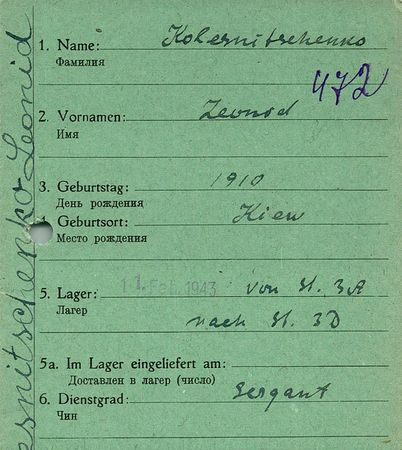 1. Name: Kolesnitschenko
Фамилия
472
2. Vornamen: Leonid
Имя
3. Geburtstag: 1910
День рождения
4. Geburtsort: Kiew
Место рождения
5. Lager: 11. Feb. 1943 von St. 3A
Лагер
nach St. 3D
5a. Im Lager eingeliefert am:
Доставлен в лагер (число)
6. Dienstgrad: Sergant
Чин
esnitschenko Leonid